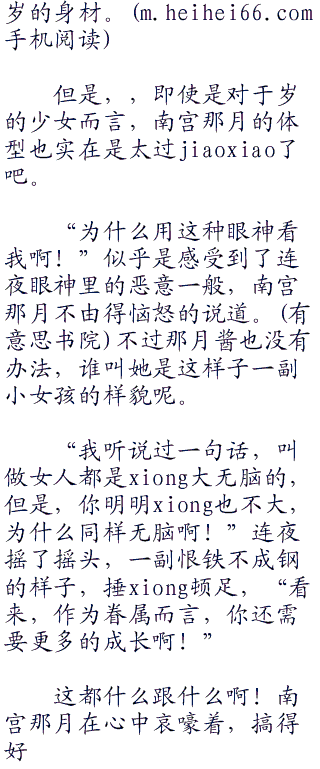 岁的身材。(m.heihei66.com
手机阅读)
但是，，即使是对于岁
的少女而言，南宫那月的体
型也实在是太过jiaoxiao了
吧。
“为什么用这种眼神看
我啊！”似乎是感受到了连
夜眼神里的恶意一般，南宫
那月不由得恼怒的说道。(有
意思书院)不过那月酱也没有
办法，谁叫她是这样子一副
小女孩的样貌呢。
“我听说过一句话，叫
做女人都是xiong大无脑的，
但是，你明明xiong也不大，
为什么同样无脑啊！”连夜
摇了摇头，一副恨铁不成钢
的样子，捶xiong顿足，“看
来，作为眷属而言，你还需
要更多的成长啊！”
这都什么跟什么啊！南
宫那月在心中哀嚎着，搞得
好